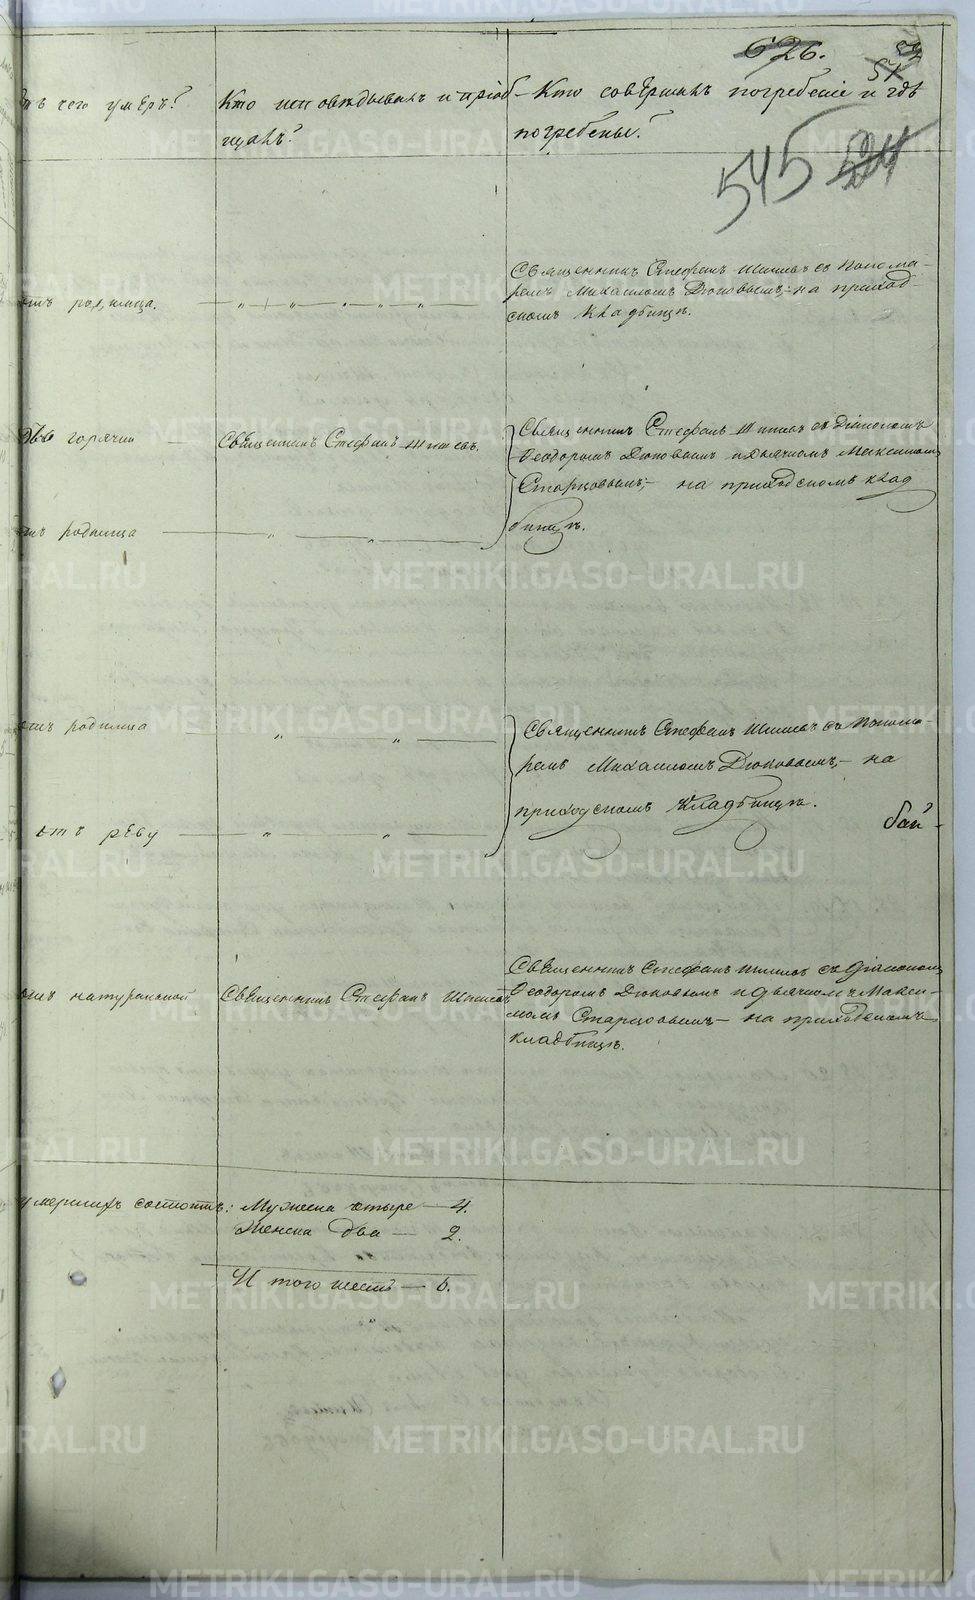 626.
57
545 524
отъ чего умеръ?
Кто исповѣдывалъ и пріоб-
щалъ?
Кто совершалъ погребеніе и гдѣ
погребены?
отъ родимца.
Священникъ Стефанъ Шишевъ съ Понома-
ремъ Михаиломъ Дюковымъ,- на приход-
скомъ кладбищѣ.
отъ горячки
Священникъ Стефанъ Шишевъ.
Священникъ Стефанъ Шишевъ съ Діакономъ
Ѳеодоромъ Дюковымъ и Дьячкомъ Максимомъ
Старцовымъ,- на приходскомъ клад
бищѣ.
отъ родимца
отъ родимца
Священникъ Стефанъ Шишевъ съ Понома-
ремъ Михаиломъ Дюковымъ,- на
приходскомъ кладбищѣ.
отъ рѣзу
отъ натуральной
Священникъ Стефанъ Шишевъ
Священникъ Стефанъ Шишевъ съ Діакономъ
Ѳеодоромъ Дюковымъ и Дьячкомъ Макси-
момъ Старцовымъ- на приходскомъ
кладбищѣ.
умершихъ состоитъ: Мужеска четыре - 4.
Женска два - 2.
И того шесть - 6.
METRIKI.GASO-URAL.RU